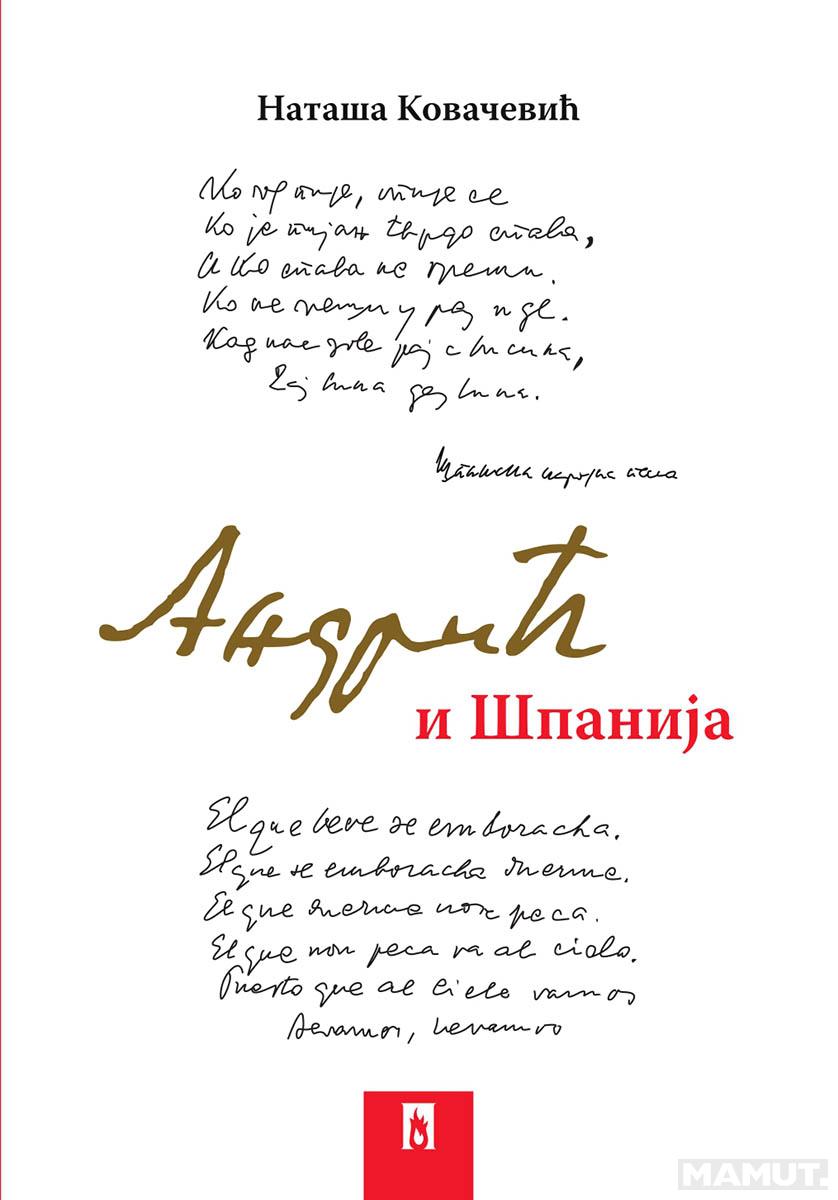 Наташа Ковачевић
Ко пије, опије се
Ко је пијан тврдо спава,
А ко спава не греши.
Ко не греши у рај иде.
Кад нас зове рај с висина,
Дај вина дај вина.
Шпанска народна песма
Андрић
и Шпанија
El que beve se emboracha.
El que se emboracha duerme.
El que duerme non peca.
El que non peca va al cielo.
Puesto que al cielo vamos
Bevamos,
MAMUT.